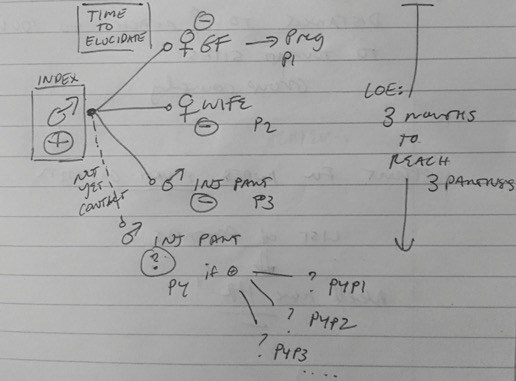 TIME
TO
ELUCIDATE
INDEX
♂
+
−
♀ GF → Preg
P1
♀ WIFE
− P2
NOT
YET
CONTACT
♂ INJ PART
− P3
♂ INJ PART
?
P4 if ⊕
? P4P1
? P4P2
? P4P3
.....
LOE:
3 MONTHS
TO
REACH
3 PARTNERS